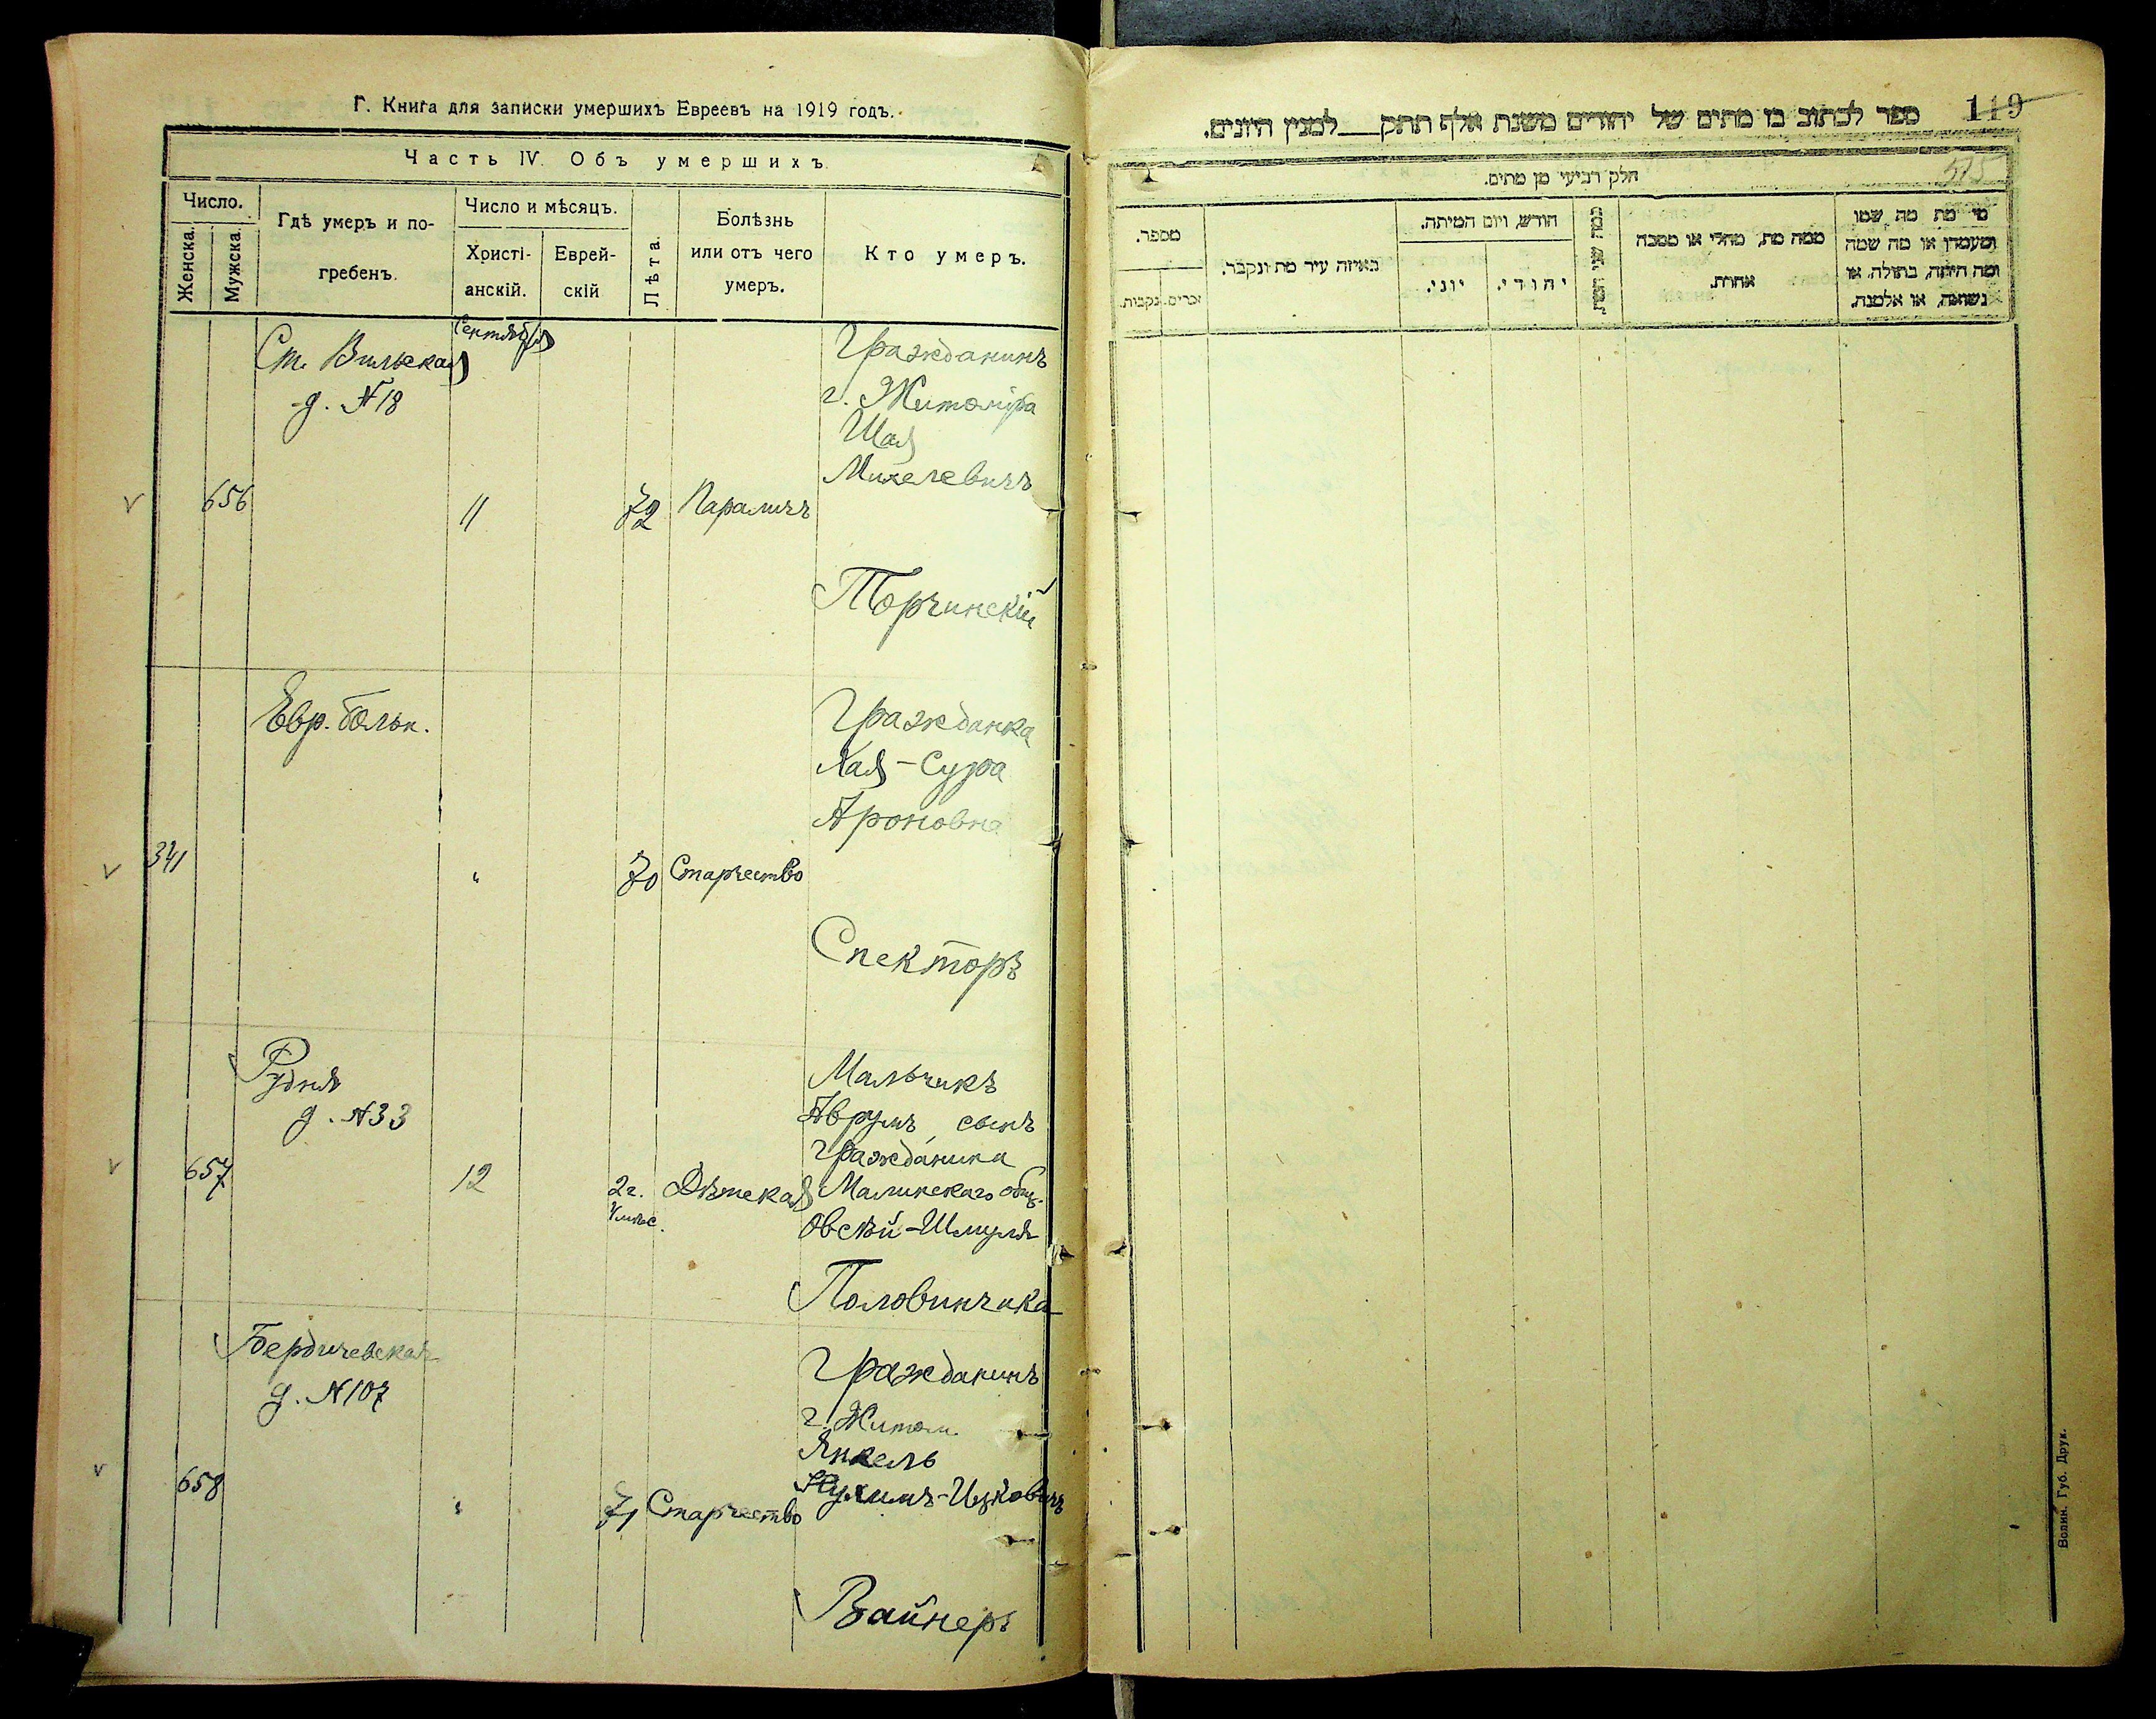 Г. Книга для записки умершихъ Евреевъ на 1919 годъ.
Часть IV. Объ умершихъ.
Число.
Женска.
Мужска.
Гдѣ умеръ и по-
гребенъ.
Число и мѣсяцъ.
Христі-
анскій.
Еврей-
скій
Лѣта.
Болѣзнь
или отъ чего
умеръ.
Кто умеръ.
Сентября
Ст. Вильская
д. №18
Гражданинъ
г. Житоміра
Шая
Михелевичъ
656
11
72
Параличъ
Торчинскій
Евр. больн.
Гражданка
Хая-Сура
Ароновна
341
"
70
Старчество
Спекторъ
Рудня
д. №33
Мальчикъ
Аврумъ, сынъ
гражданина
657
12
2г.
Дѣтская
Малинскаго общ.
Овсѣй-Шмуля
Половинчика
Бердичевская
д. №107
Гражданинъ
г. Житом.
Янкель
Нухимъ-Ицковичъ
658
"
71
Старчество
Вайнеръ
119
ספר לכתוב בו מתים של יהודים משנת אלף תתק___למנין היונים.
515
חלק רביעי מן מתים.
מספר.
זכרים.
נקבות.
באיזה עיר מת ונקבר.
חודש, ויום המיתה.
יוני.
יהודי.
ממה מת, מחלי או מסבה
אחרת.
מי מת מה שמו
ומעמדו או מה שמה
ומה היתה, בתולה, או
נשואה, או אלמנה.
Волин. Губ. Друк.